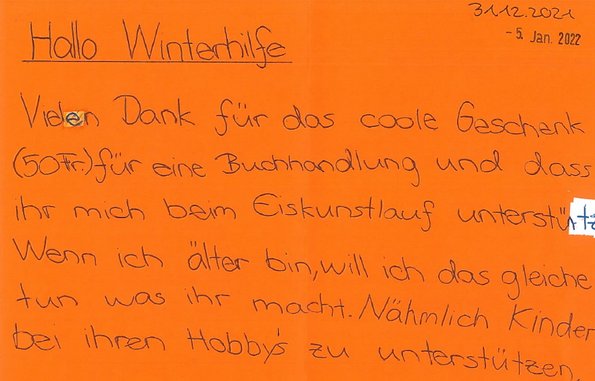 31.12.2021
- 5. Jan. 2022
Hallo Winterhilfe
Vielen Dank für das coole Geschenk
(50Fr.) für eine Buchhandlung und dass
ihr mich beim Eiskunstlauf unterstütz
Wenn ich älter bin, will ich das gleiche
tun was ihr macht. Nähmlich Kinder
bei ihren Hobby's zu unterstützen.